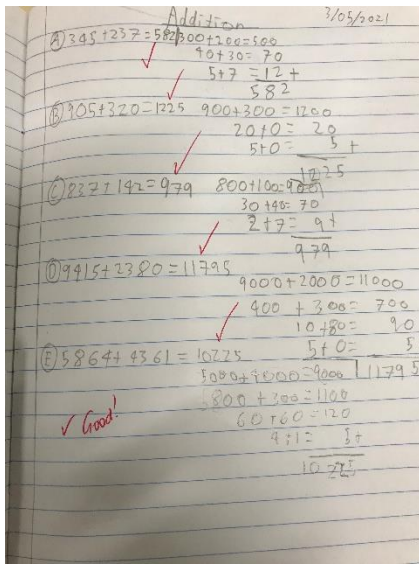 Addition
3/05/2021
Ⓐ 345+237=582 300+200=500
40+30= 70
5+7 =12+
582
Ⓑ 905+320=1225 900+300=1200
20+0= 20
5+0= 5+
1225
Ⓒ 837+142=979 800+100=900
30+40= 70
2+7= 9+
979
Ⓓ 9415+2380=11795
9000+2000=11000
400 + 300= 700
10+80= 90
5+0= 5
11795
Ⓔ 5864+4361=10225
5000+4000=9000
800+300=1100
60+60=120
4+1= 5+
✓ Good!